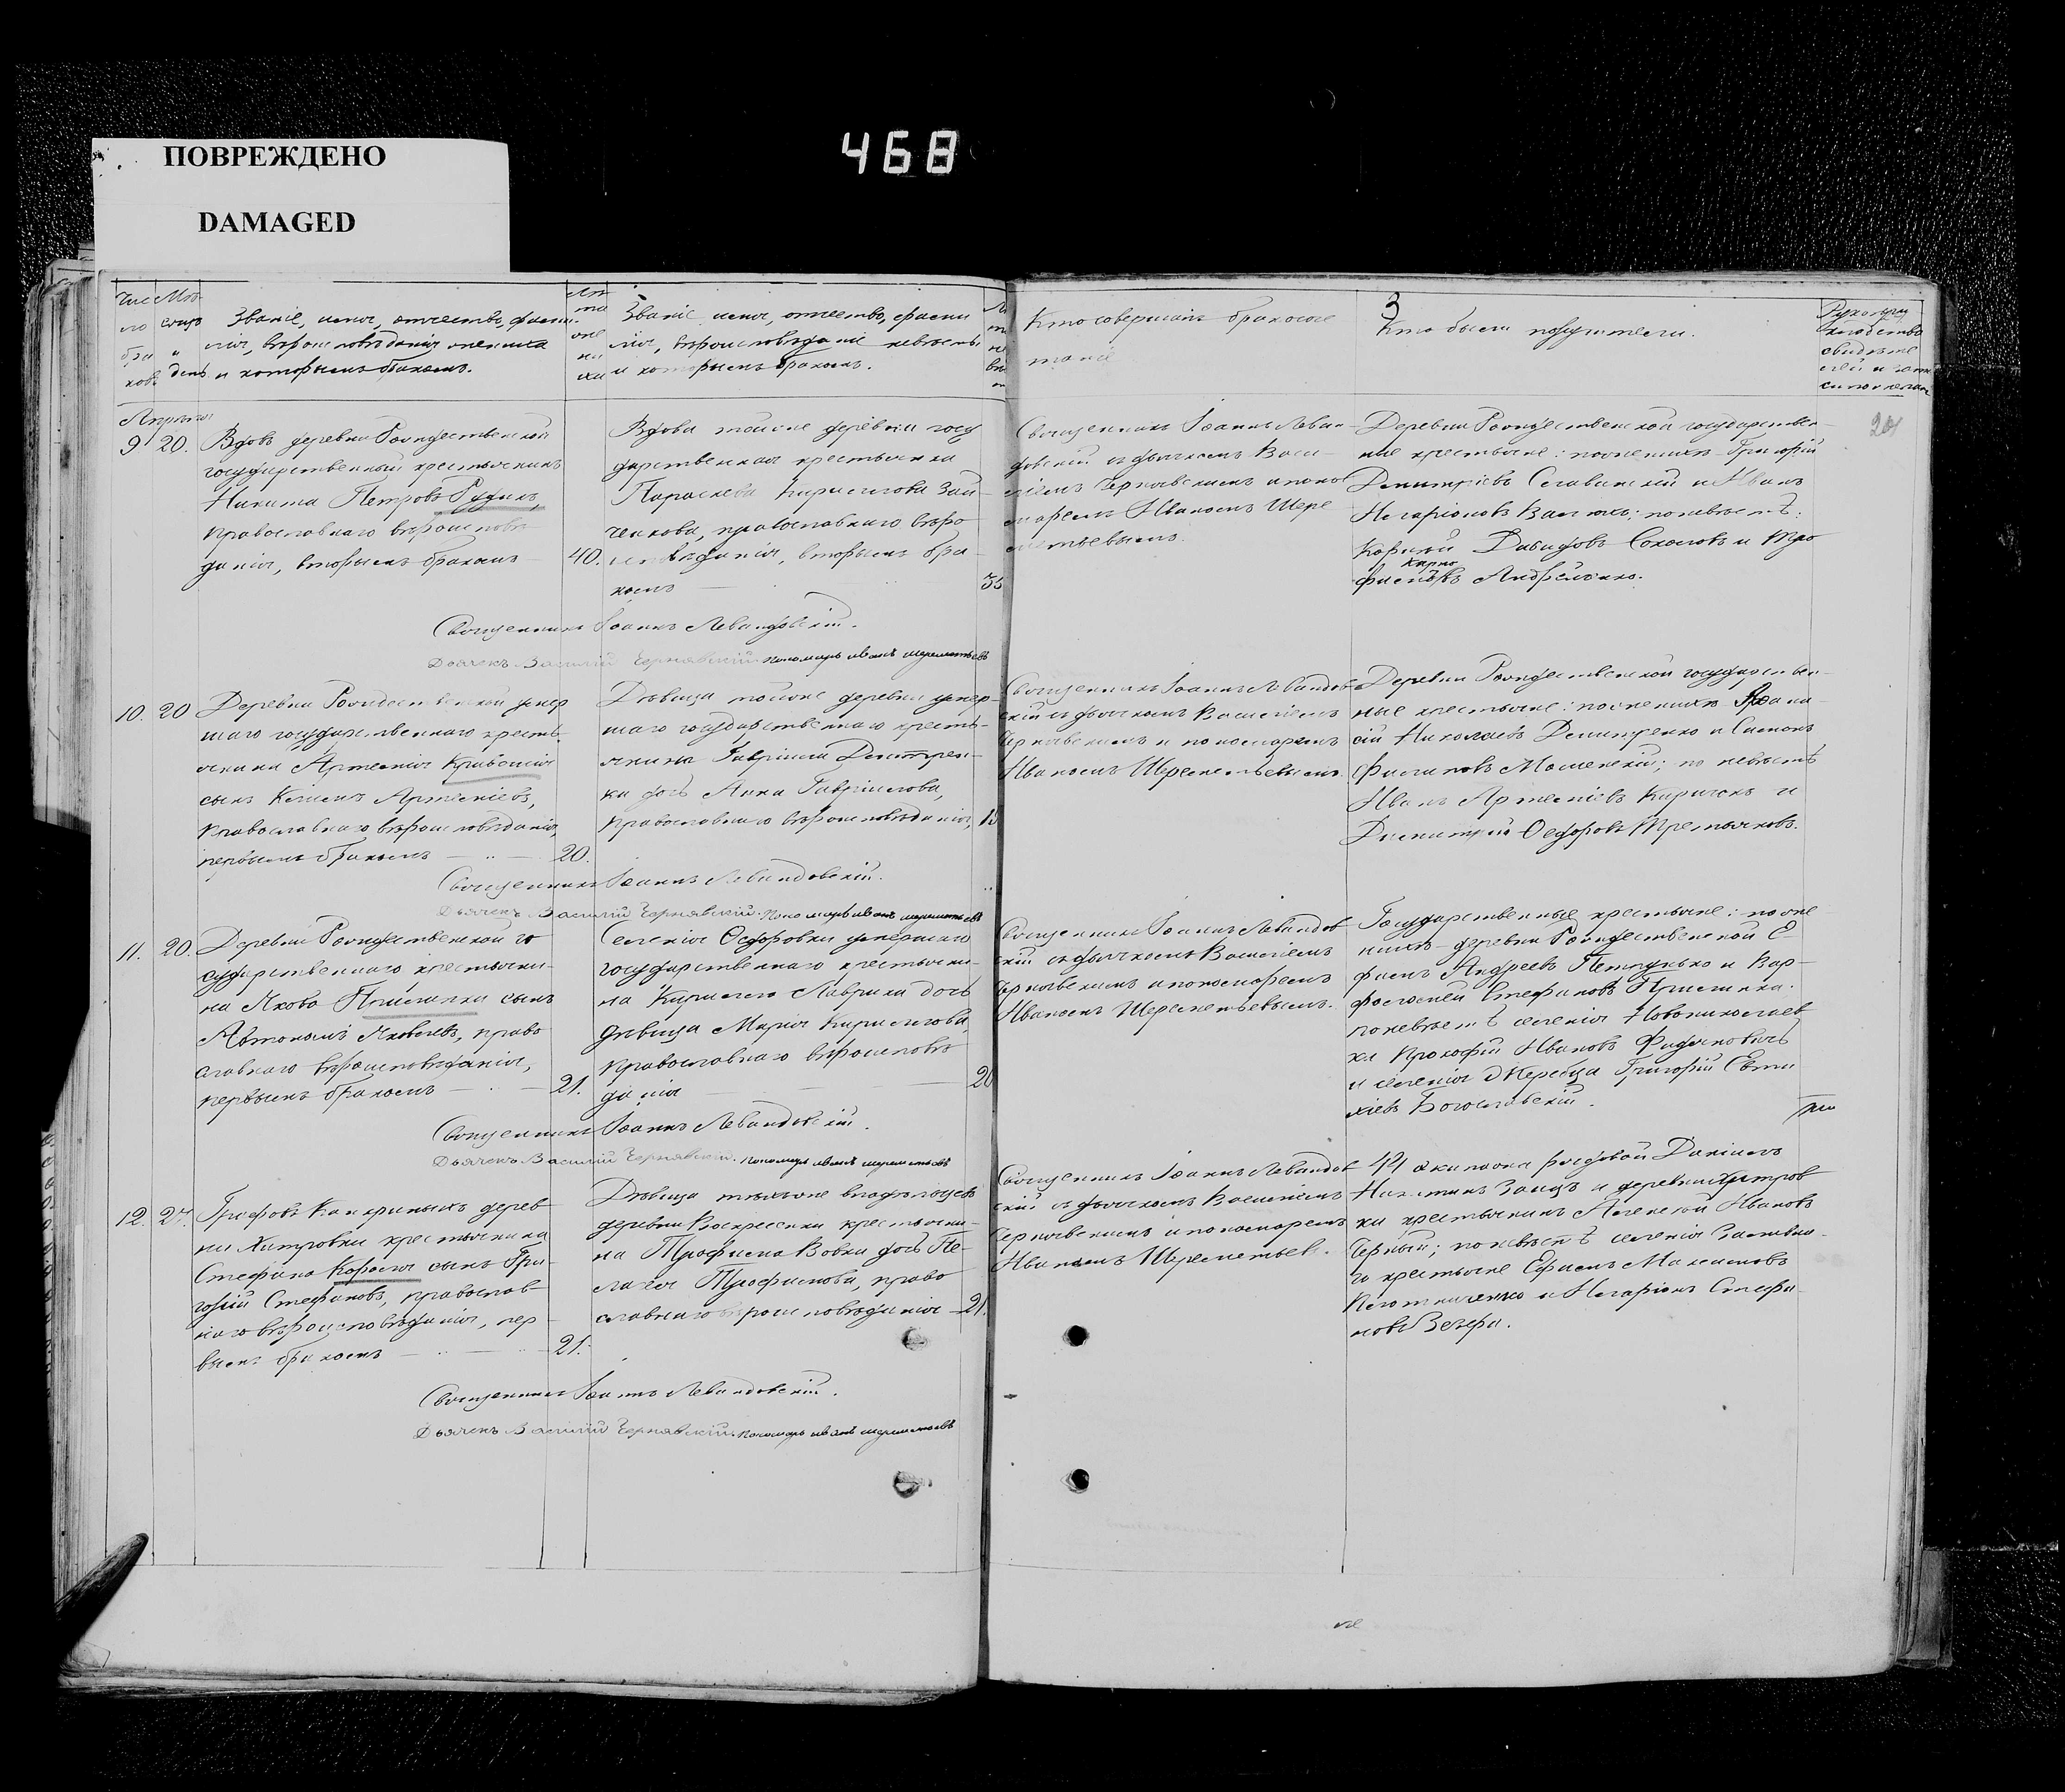 468
ПОВРЕЖДЕНО
DAMAGED
3
Чис Мѣ
ло сяцъ Званіе, имя, отчество, фами
бра и лія, вѣроисповѣданіе жениха
ковъ день и которымъ бракомъ.
Лѣ
та
же
ни
ха
Званіе, имя, отчество, фами
лія, вѣроисповѣданіе невѣсты
и которымъ бракомъ.
Кто совершалъ бракосоче
таніе
Кто были поручители.
Апрѣль
9 20. Вдовъ деревни Рождественской
государственный крестьянинъ
Никита Петровъ Рудикъ,
православнаго вѣроисповѣ
данія, вторымъ бракомъ 40.
Вдова тойже деревни госу
дарственная крестьянка
Параскева Кириллова Зай
ченкова, православнаго вѣро
исповѣданія, вторымъ бра
комъ
Священникъ Іоаннъ Леван
довскій съ дьячкомъ Васи
ліемъ Чернявскимъ и поно
маремъ Иваномъ Шере
метьевымъ.
Деревни Рождественской государствен
ные крестьяне: по женихѣ Григорій
Димитріевъ Славинскій и Иванъ
Иларіоновъ; по невѣстѣ:
Корнилій Давидовъ Соколовъ и Тро
фимъ Андрейченко.
Священникъ Іоаннъ Левандовскій.
Дьячекъ Василій Чернявскій. Пономарь иванъ шереметьевъ
10. 20 Деревни Рождественской умер
шаго государственнаго кресть
янина Артемія Кривошія
сынъ Климъ Артеміевъ,
православнаго вѣроисповѣданія,
первымъ бракомъ 20.
Дѣвица тойже деревни умер
шаго государственнаго кресть
янина Гавріила Дмитрен
ка дочь Анна Гавріилова,
православнаго вѣроисповѣданія,
Священникъ Іоаннъ Левандов
скій съ дьячкомъ Василіемъ
Чернявскимъ и пономаремъ
Иваномъ Шереметьевымъ.
Деревни Рождественской государствен
ные крестьяне: по женихѣ Афана
сій Николаевъ Димитренко и Симонъ
Филиповъ; по невѣстѣ
Иванъ Артеміевъ Киричокъ и
Димитрій Ѳедоровъ Третьяковъ.
Священникъ Іоаннъ Левандовскій.
Дьячекъ Василій Чернявскій. Пономарь иванъ шереметьевъ
11. 20. Деревни Рождественской го
сударственнаго крестьяни
на Якова Прилипки сынъ
Автономъ Яковлевъ, право
славнаго вѣроисповѣданія,
первымъ бракомъ 21.
Селенія Ѳедоровки умершаго
государственнаго крестьяни
на Кирилла Лаврика дочь
дѣвица Марія Кириллова,
православнаго вѣроисповѣ
данія 20
Священникъ Іоаннъ Левандов
скій съ дьячкомъ Василіемъ
Чернявскимъ и пономаремъ
Иваномъ Шереметьевымъ.
Государственные крестьяне: по же
нихѣ деревни Рождественской Е
фимъ Андреевъ Петрунько и Вар
фоломей Стефановъ Прилипка.
по невѣстѣ селенія Новониколаев
ки Прокофій Ивановъ Федяновичъ
и селенія Жеребца Григорій Евти
хіевъ Богославскій.
Священникъ Іоаннъ Левандовскій.
Дьячекъ Василій Чернявскій. Пономарь иванъ шереметьевъ
12. 27. Графовъ Канкриныхъ дерев
ни Хитровки крестьянина
Стефана Короля сынъ Гри
горій Стефановъ, православ
наго вѣроисповѣданія, пер
вымъ бракомъ 21.
Дѣвица тѣхъже владѣльцевъ
деревни Воскресенки крестьяни
на Трофима Вовки дочь Пе
лагія Трофимова, право
славнаго вѣроисповѣданія 21.
Священникъ Іоаннъ Левандов
скій съ дьячкомъ Василіемъ
Чернявскимъ и пономаремъ
Иваномъ Шереметьев.
44 экипажа рядовой Даніилъ
Никитинъ Заецъ и деревни Хитров
ки крестьянинъ Алексѣй Ивановъ
Черный; по невѣстѣ селенія
крестьяне Ефимъ Максимовъ
и Иларіонъ Стефа
новъ Везера.
Священникъ Іоаннъ Левандовскій.
Дьячекъ Василій Чернявскій. Пономарь иванъ шереметьевъ